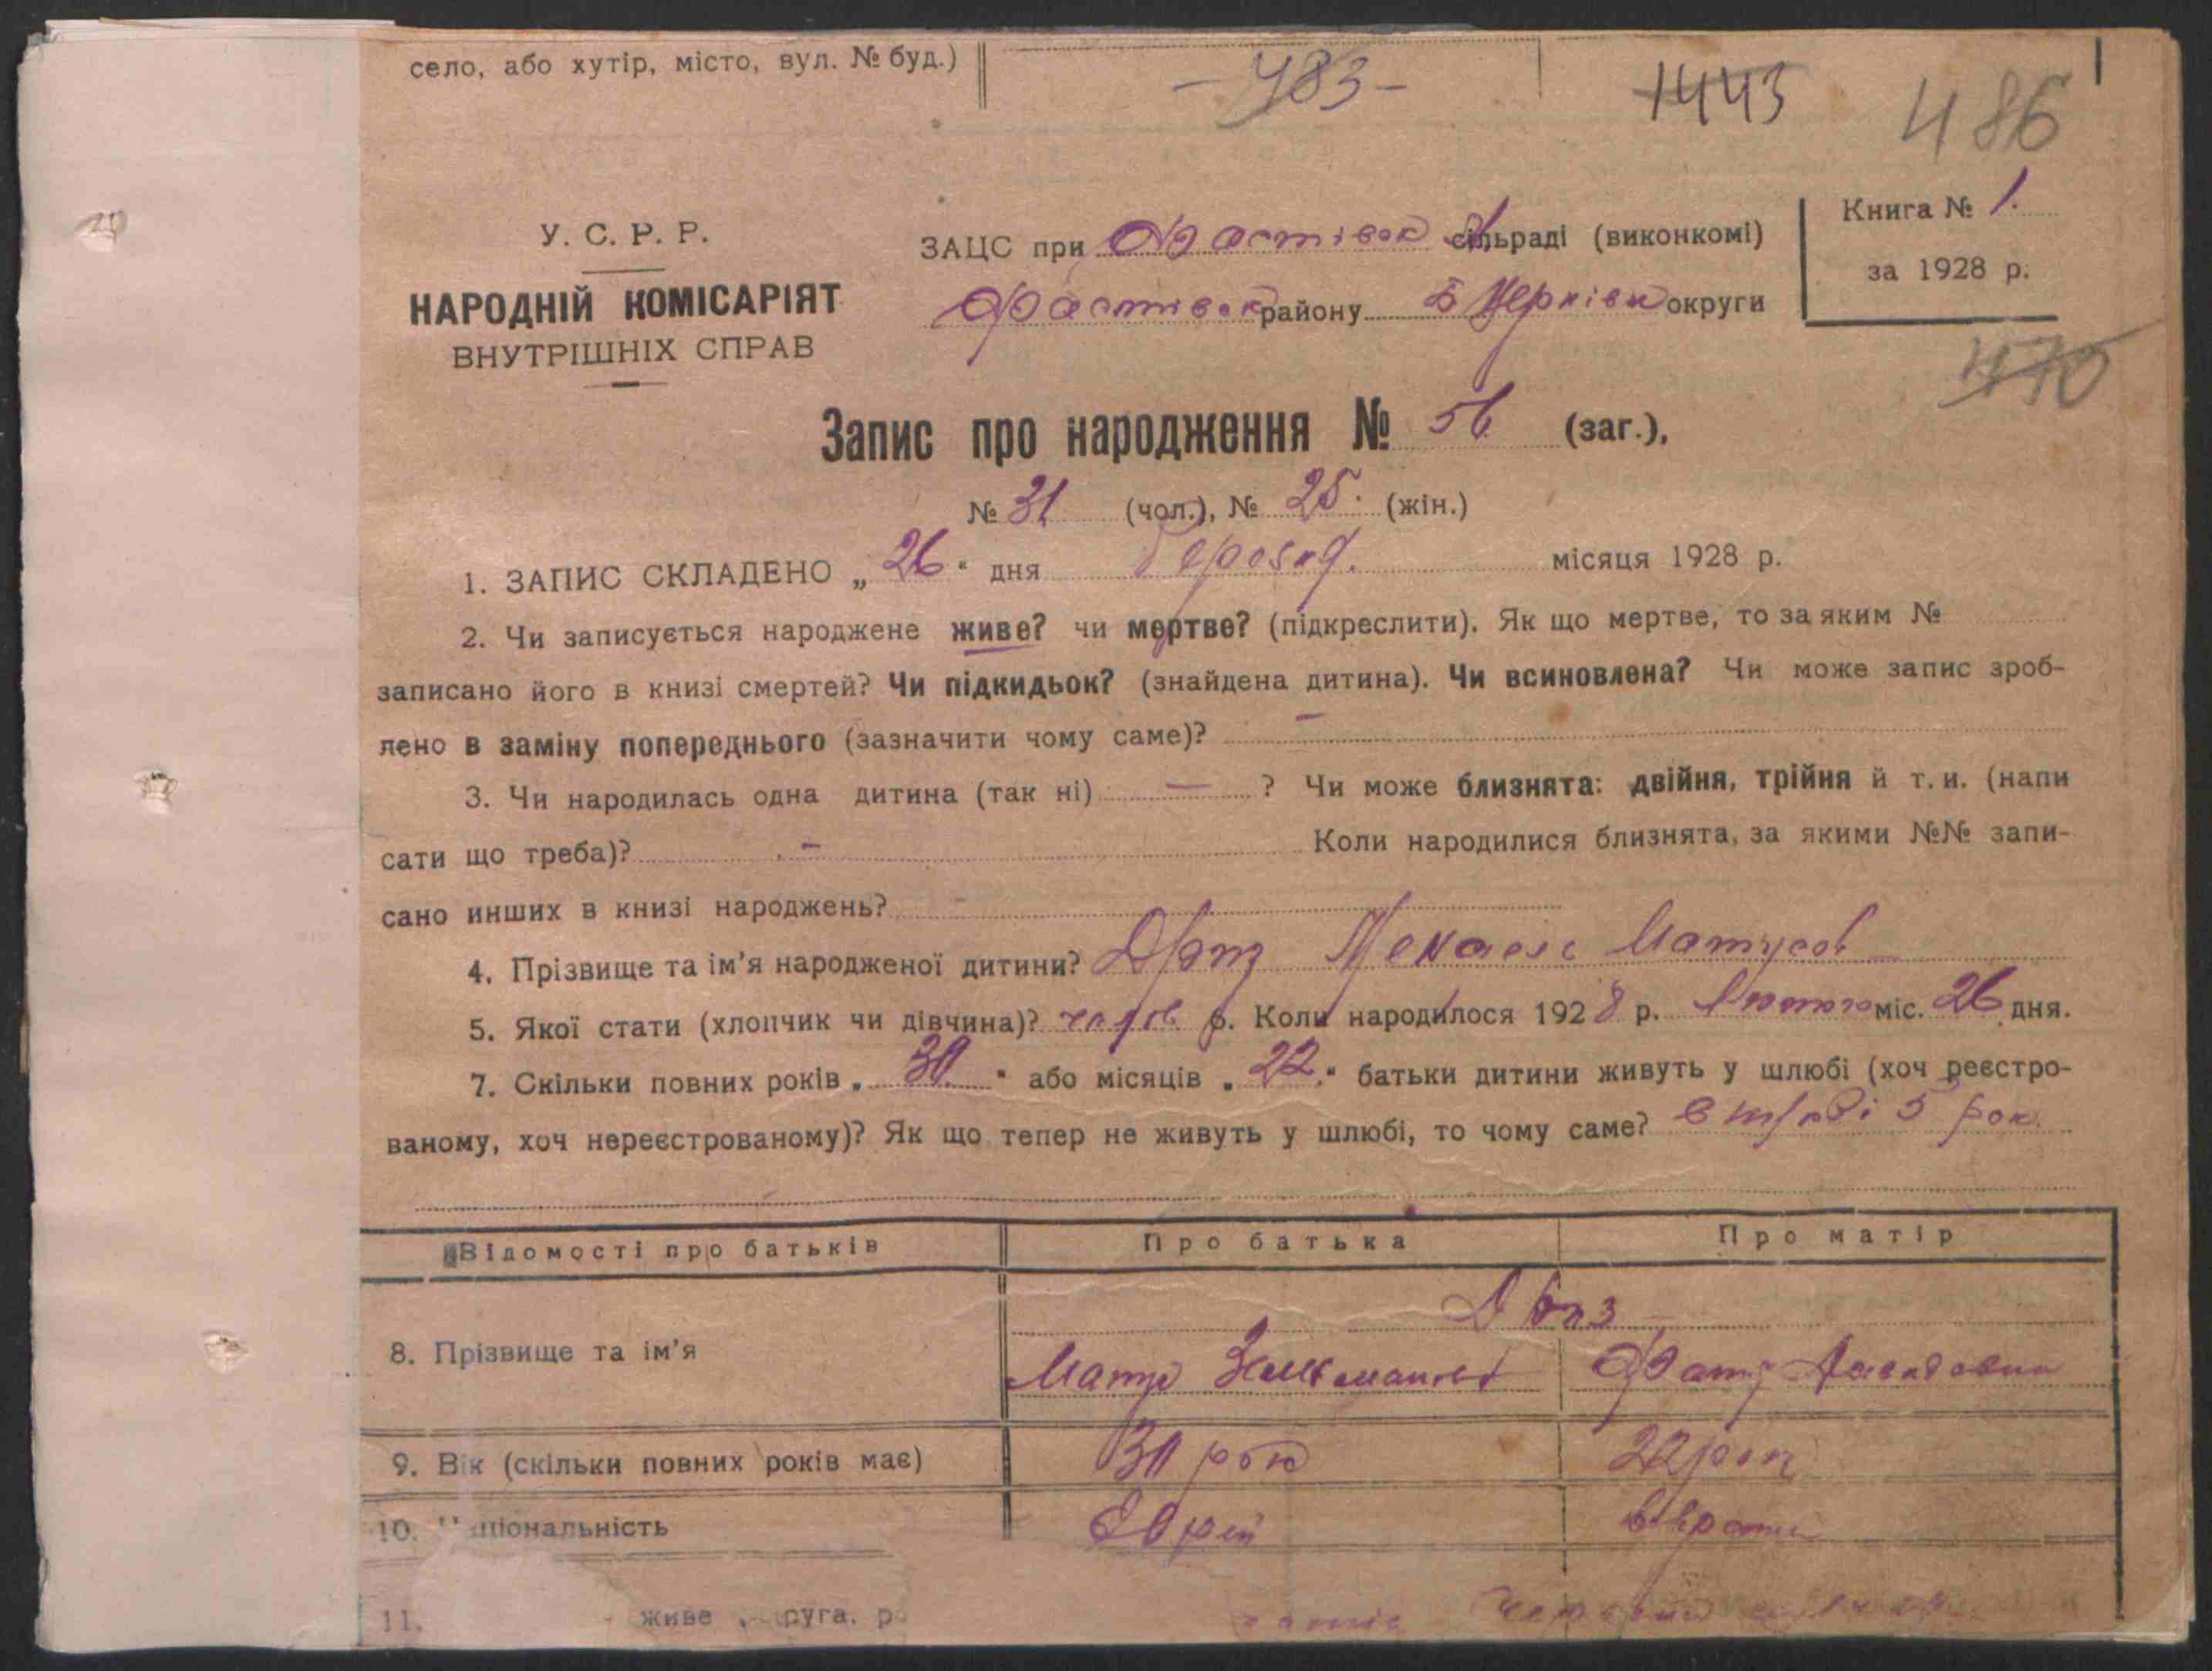 село, або хутір, місто, вул. № буд.)
- 483 -
1443
486
У. С. Р. Р.
НАРОДНІЙ КОМІСАРІЯТ
ВНУТРІШНІХ СПРАВ
ЗАЦС при Фастівск сільраді (виконкомі)
Фастівск району Б Церківск округи
Книга № 1.
за 1928 р.
470
Запис про народження № 56 (заг.),
№ 31 (чол.), № 25. (жін.)
1. ЗАПИС СКЛАДЕНО „ 26 " дня березня місяця 1928 р.
2. Чи записується народжене живе? чи мертве? (підкреслити). Як що мертве, то за яким №
записано його в книзі смертей? Чи підкидьок? (знайдена дитина). Чи всиновлена? Чи може запис зроб-
лено в заміну попереднього (зазначити чому саме)? —
3. Чи народилась одна дитина (так ні) — ? Чи може близнята: двійня, трійня й т. и. (напи
сати що треба)? - Коли народилися близнята, за якими №№ запи-
сано инших в книзі народжень? -
4. Прізвище та ім'я народженої дитини? Матусов
5. Якої стати (хлопчик чи дівчина)? чолов. 6. Коли народилося 1928 р. Лютого міс. 26 дня.
7. Скільки повних років „ 30 " або місяців „ 22 " батьки дитини живуть у шлюбі (хоч реєстро-
ваному, хоч нереєстрованому)? Як що тепер не живуть у шлюбі, то чому саме? в шлюбі 5 рок.
Відомості про батьків Про батька Про матір
8. Прізвище та ім'я
Давидовна
9. Вік (скільки повних років має) 30 рок 22 рок
10. Національність Єврей Єврейка
11. живе округа, р